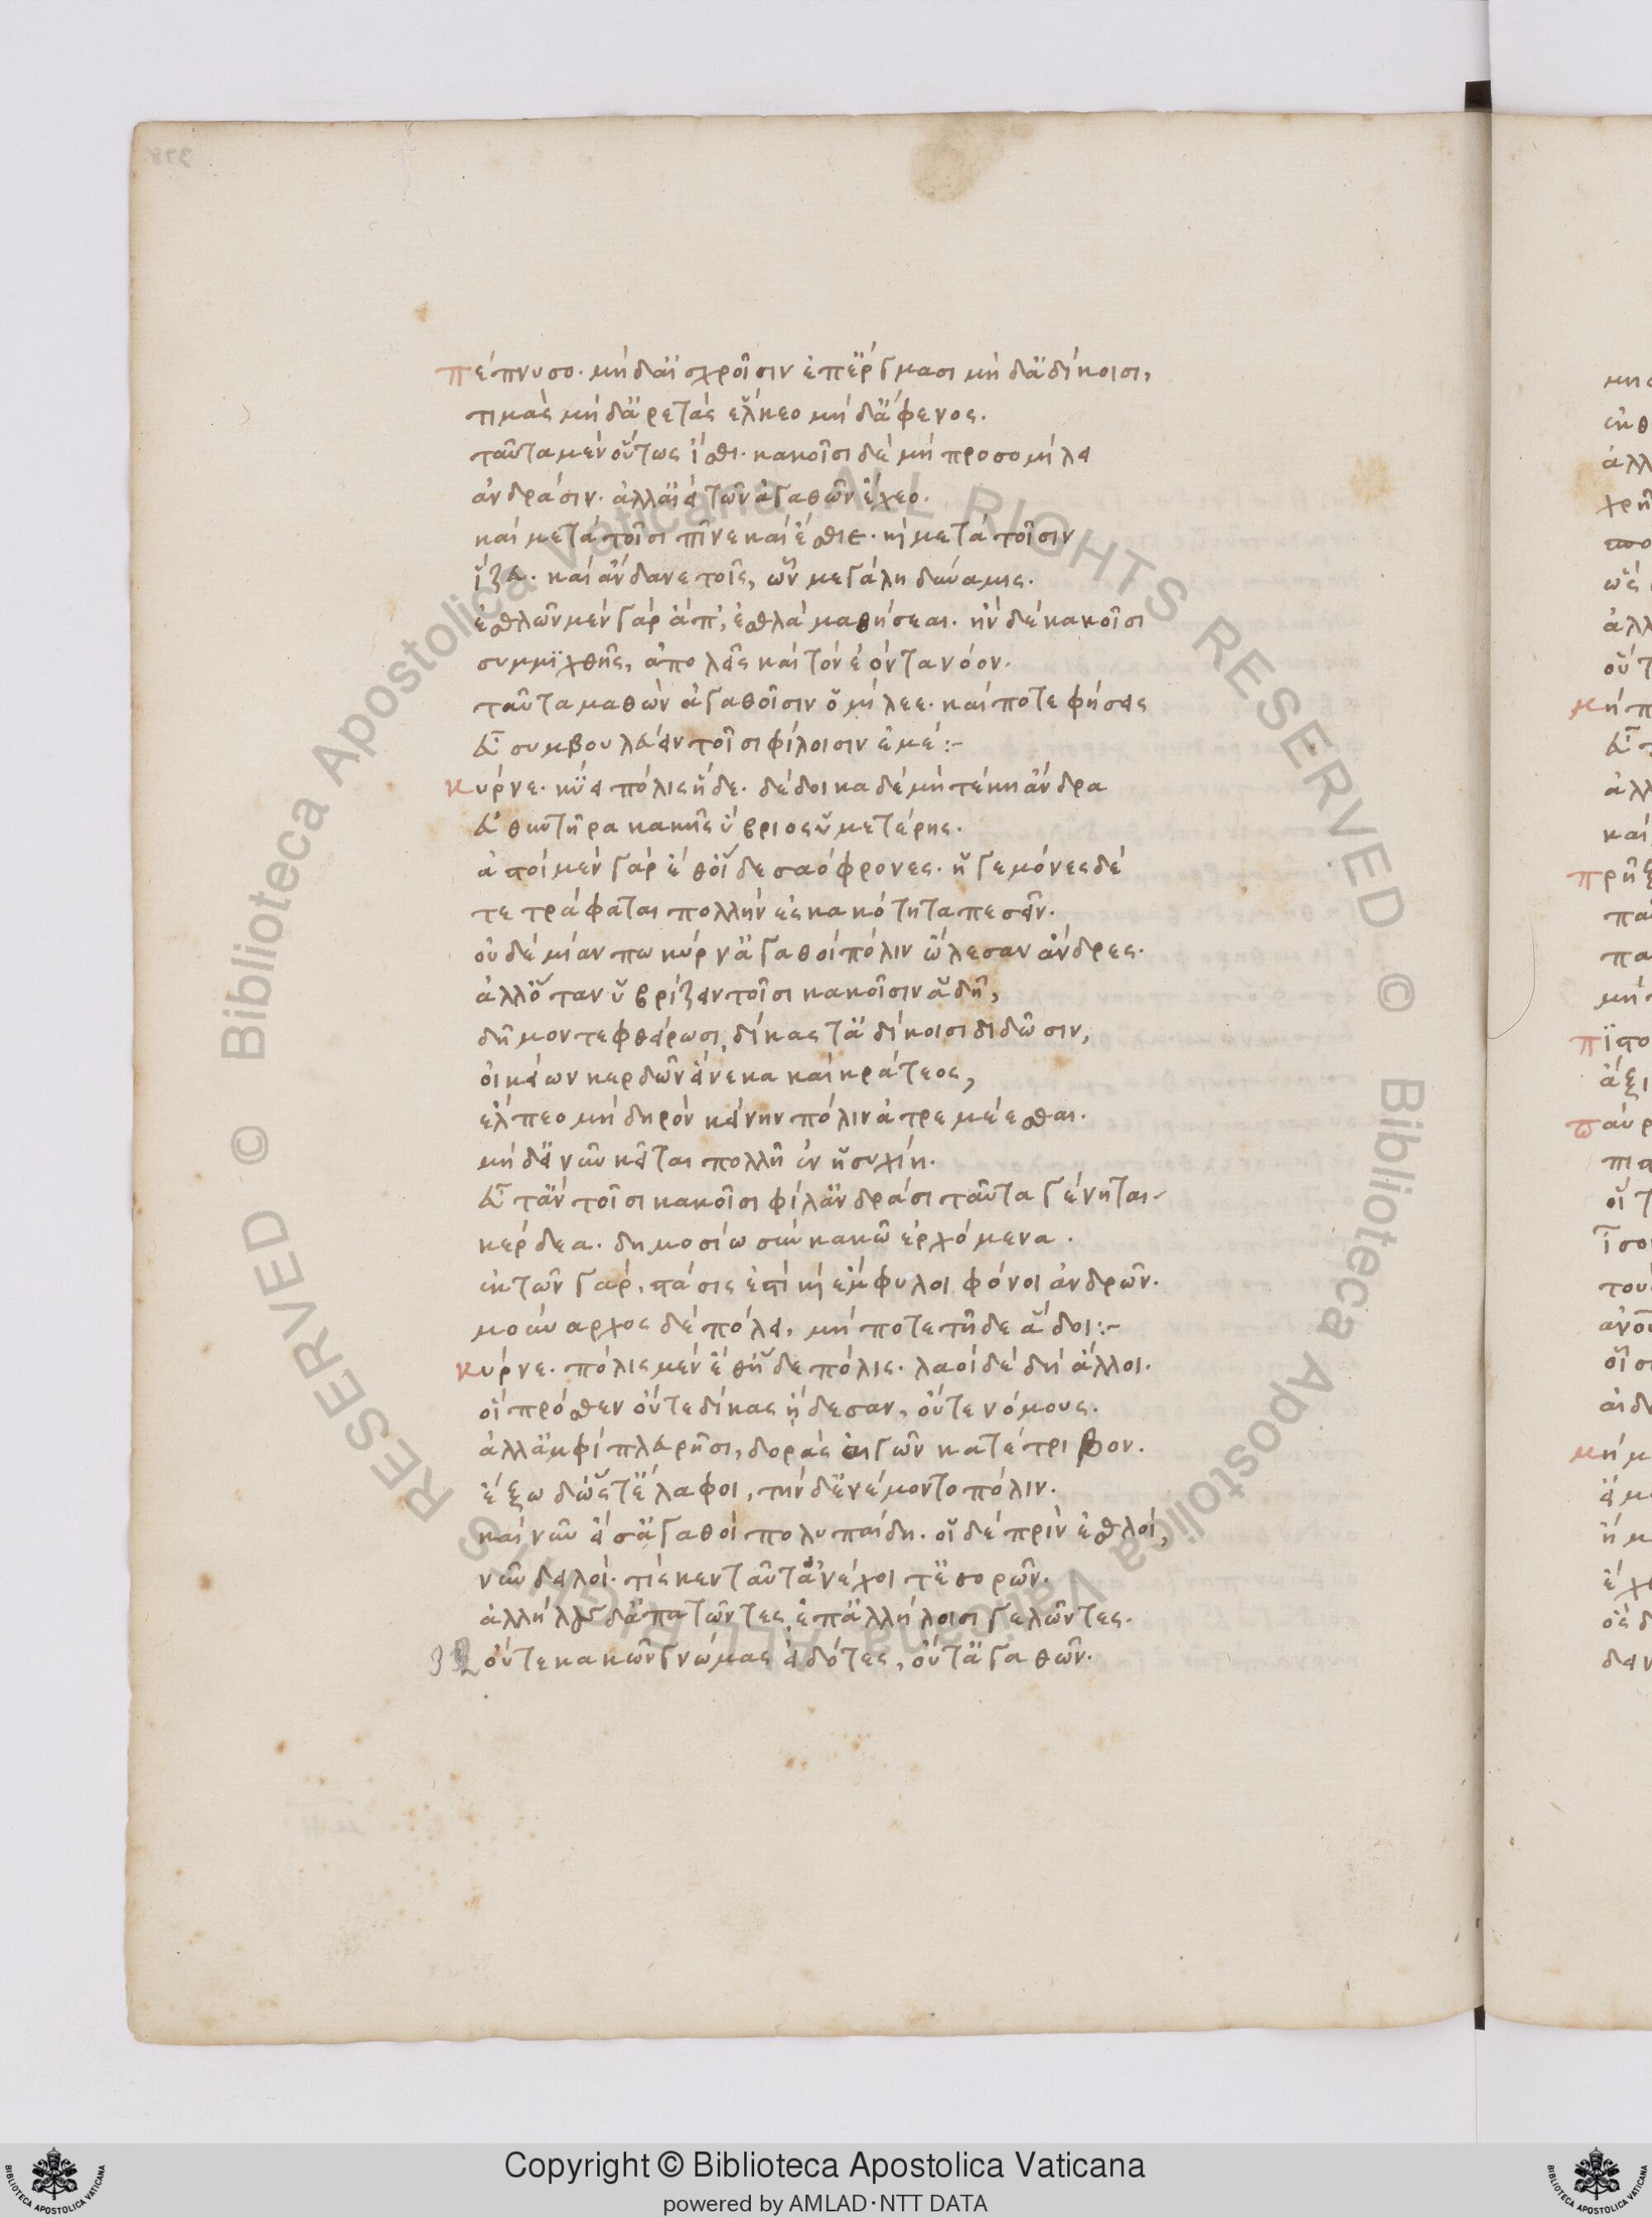 πέπνυσο· μὴδ' αἰσχροῖσιν ἐπ' ἔργμασι μὴδ' ἀδίκοισι,
τιμὰς μὴδ' ἀρετὰς ἕλκεο μὴδ' ἄφενος.
ταῦτα μὲν οὕτως ἴσθι· κακοῖσι δὲ μὴ προσομίλει
ἀνδράσιν· ἀλλ' αἰεὶ τῶν ἀγαθῶν ἔχεο.
καὶ μετὰ τοῖσι πῖνε καὶ ἔσθιε· καὶ μετὰ τοῖσιν
ἵζει· καὶ ἅνδανε τοῖς, ὧν μεγάλη δύναμις.
ἐσθλῶν μὲν γὰρ ἄπ', ἐσθλὰ μαθήσεαι· ἢν δὲ κακοῖσι
συμμιχθῆς, ἀπολεῖς καὶ τὸν ἐόντα νόον.
ταῦτα μαθὼν ἀγαθοῖσιν ὁμίλεε· καί ποτε φήσεις
εὖ συμβουλεύειν τοῖσι φίλοισιν ἐμέ:-
κύρνε· κύει πόλις ἥδε· δέδοικα δὲ μὴ τέκη ἄνδρα
εὐθυντῆρα κακῆς ὕβριος ὑμετέρης.
ἀστοὶ μὲν γὰρ ἔθ' οἵδε σαόφρονες· ἡγεμόνες δὲ
τετράφαται πολλὴν εἰς κακότητα πεσεῖν.
οὐδεμίαν πω κύρν' ἀγαθοὶ πόλιν ὤλεσαν ἄνδρες·
ἀλλ' ὅταν ὑβρίζειν τοῖσι κακοῖσιν ἅδῃ,
δῆμόν τε φθείρωσι, δίκας τ' ἀδίκοισι διδῶσιν,
οἰκείων κερδῶν εἵνεκα καὶ κράτεος,
ἔλπεο μὴ δηρὸν κείνην πόλιν ἀτρεμέεσθαι.
μὴδ' εἰ νῦν κεῖται πολλῇ ἐν ἡσυχίη.
εὖτ' ἂν τοῖσι κακοῖσι φίλ' ἀνδράσι ταῦτα γένηται
κέρδεα· δημοσίω σὺν κακῶ ἐρχόμενα.
ἐκ τῶν γὰρ, στάσις ἐστὶ καὶ ἔμφυλοι φόνοι ἀνδρῶν.
μούναρχος δὲ πόλει, μή ποτε τῆδε ἅδοι:-
κύρνε· πόλις μὲν ἔθ' ἥδε πόλις· λαοὶ δὲ δὴ ἄλλοι.
οἳ πρόσθεν οὔτε δίκας ᾔδεσαν, οὔτε νόμους.
ἀλλ' ἀμφὶ πλευρῆσι, δορὰς αἰγῶν κατέτριβον.
ἔξω δ' ὥστ' ἔλαφοι, τήνδ' ἐνέμοντο πόλιν.
καὶ νῦν εἴσ' ἀγαθοὶ πολυπαίδη· οἱ δὲ πρὶν ἐσθλοί,
νῦν δειλοί· τίς κεν ταῦτ' ἀνέχοιτ' ἐσορῶν.
ἀλλήλους δ' ἀπατῶντες, ἐπ' ἀλλήλοισι γελῶντες.
οὔτε κακῶν γνώμας εἰδότες, οὔτ' ἀγαθῶν.
Copyright © Biblioteca Apostolica Vaticana
powered by AMLAD·NTT DATA